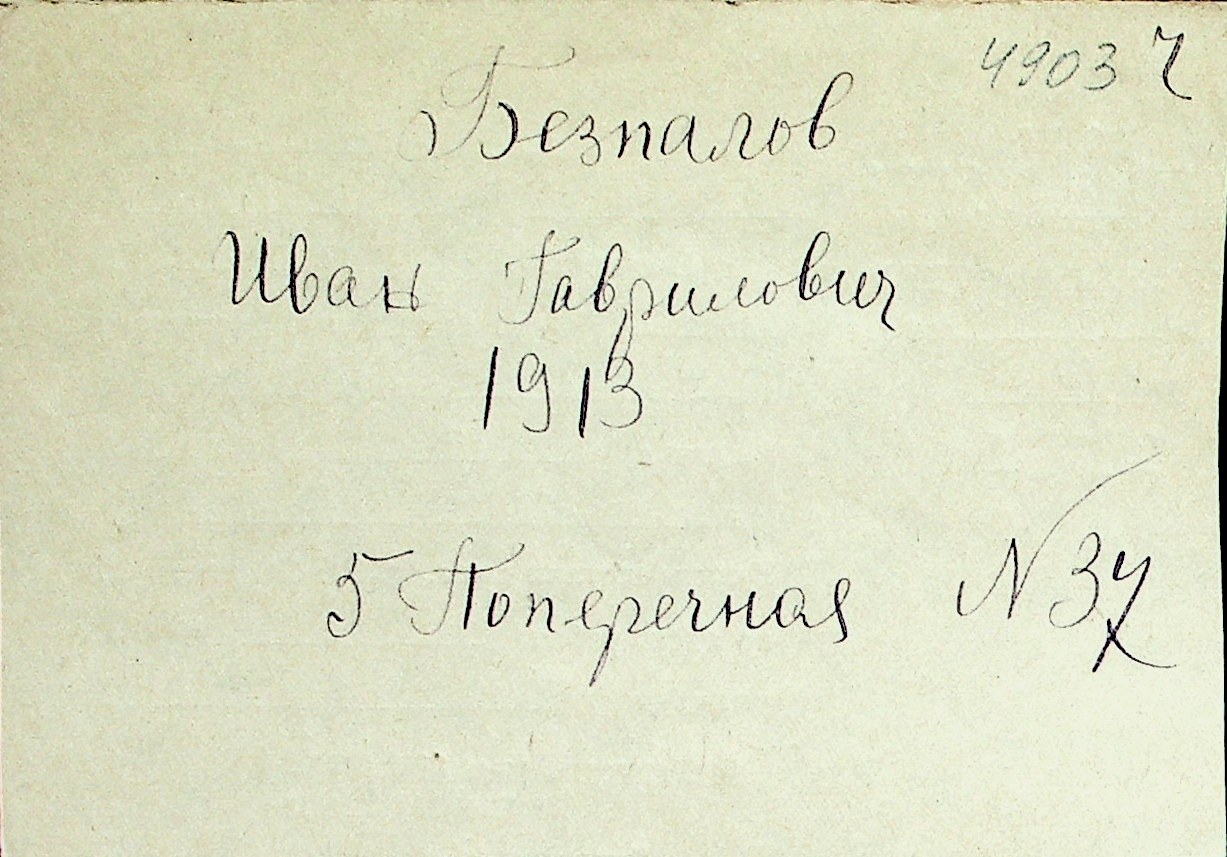 4903 ч
Безпалов
Иван Гаврилович
1913
5 Поперечная N 34